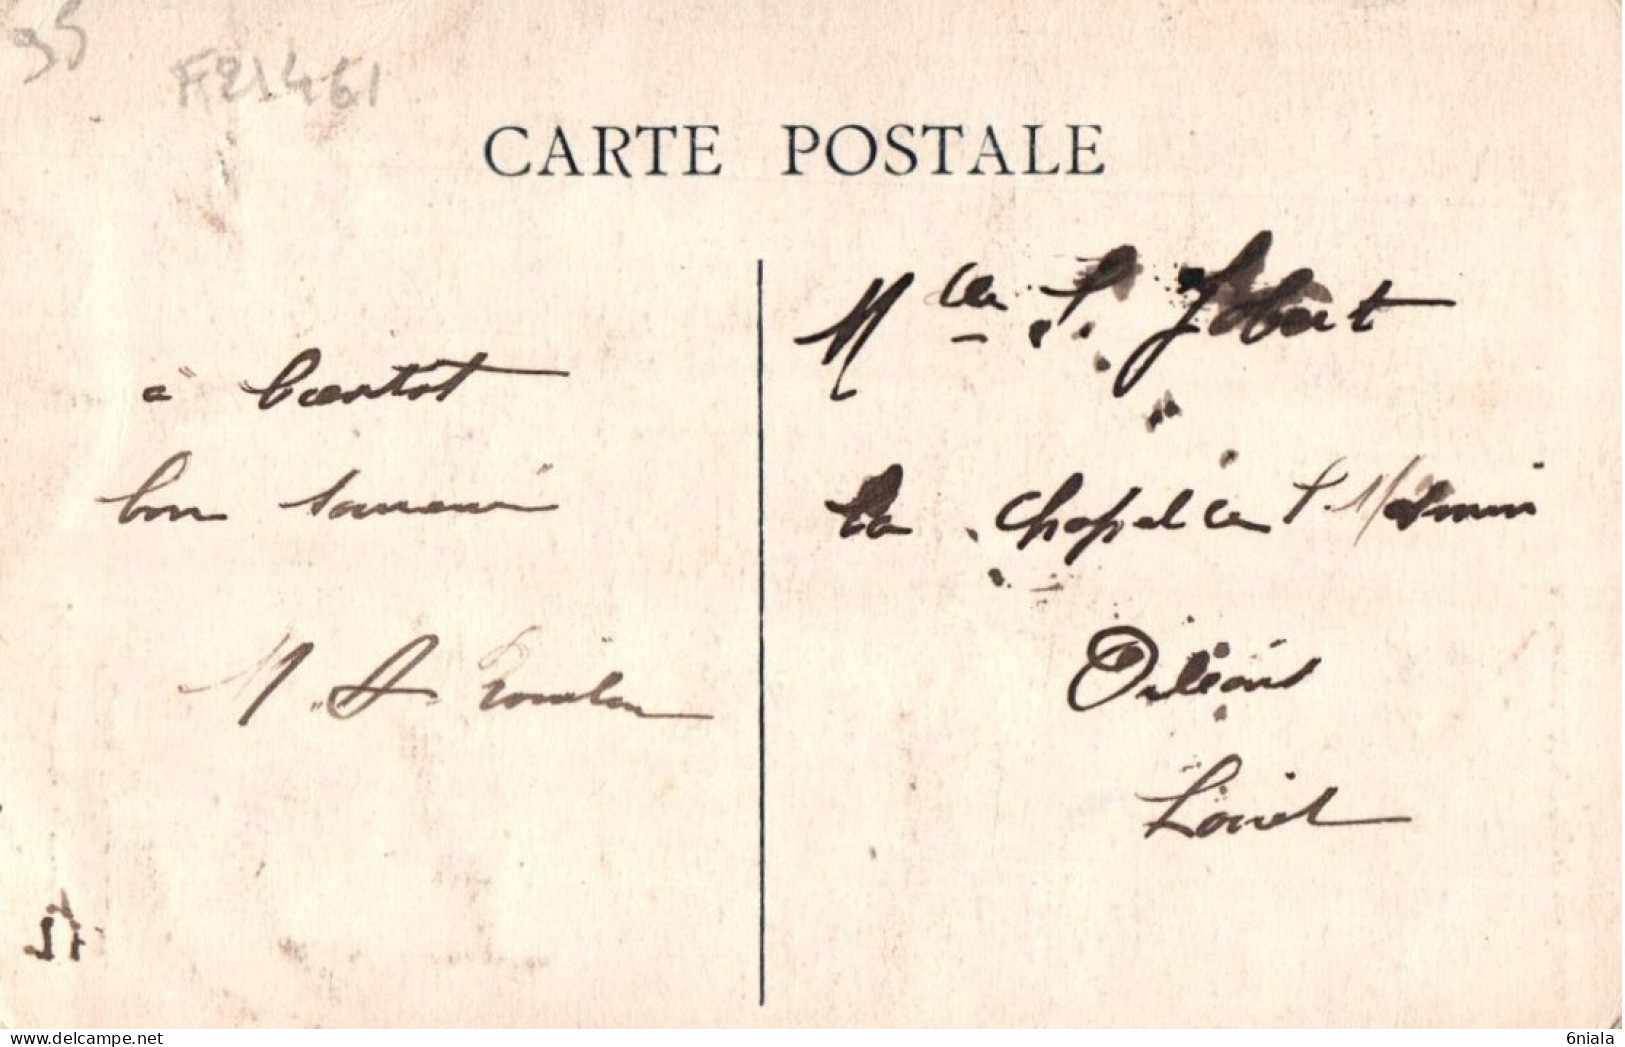 95
F21461
CARTE POSTALE
Mlle S. Jobert
à bientot
La Chapelle St Mesmin
bon souvenir
Orléans
M. A.
Loiret
delcampe.net
6niala